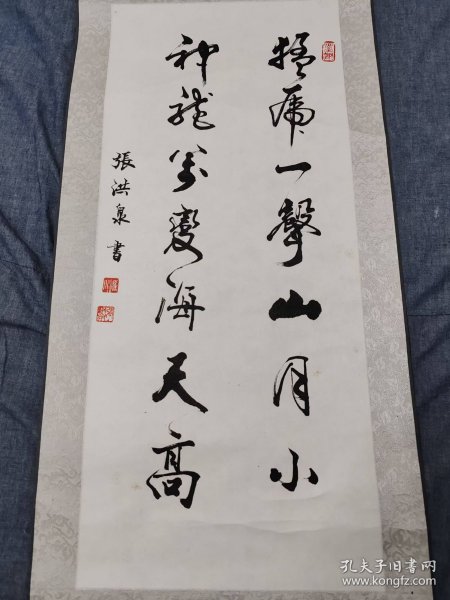 猛虎一聲山月小
神龍萬變海天高
張洪泉書
孔夫子旧书网
www.kongfz.com